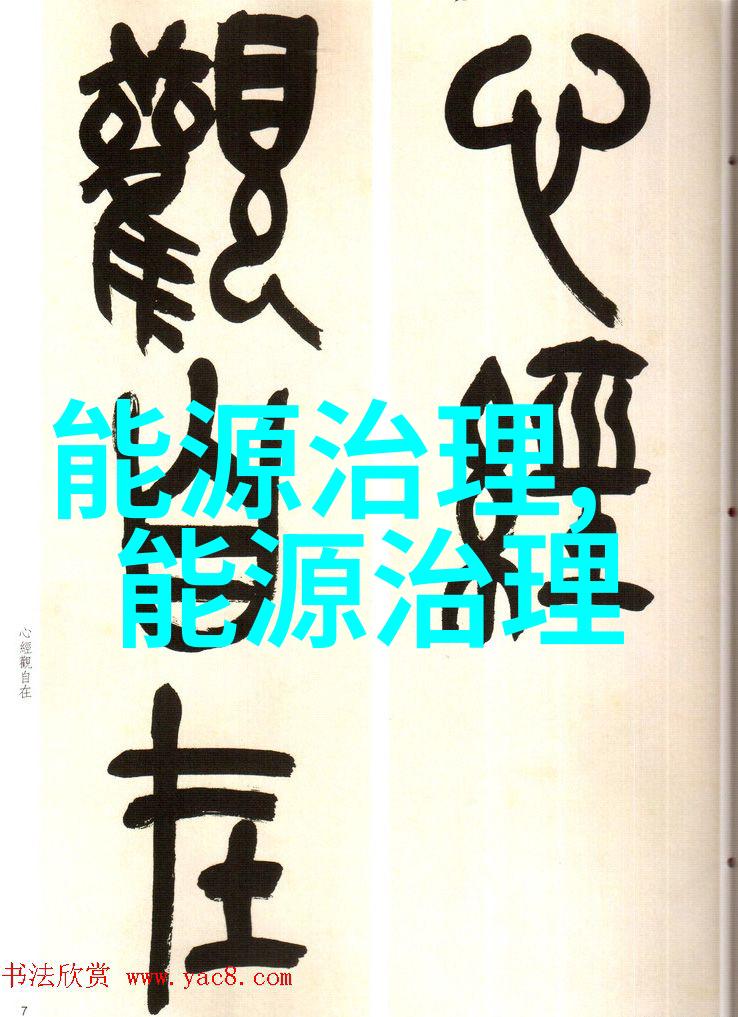 心經
觀自在
能源治理,
能源治理
心經觀自在
书法欣赏 www.yac8.com
7